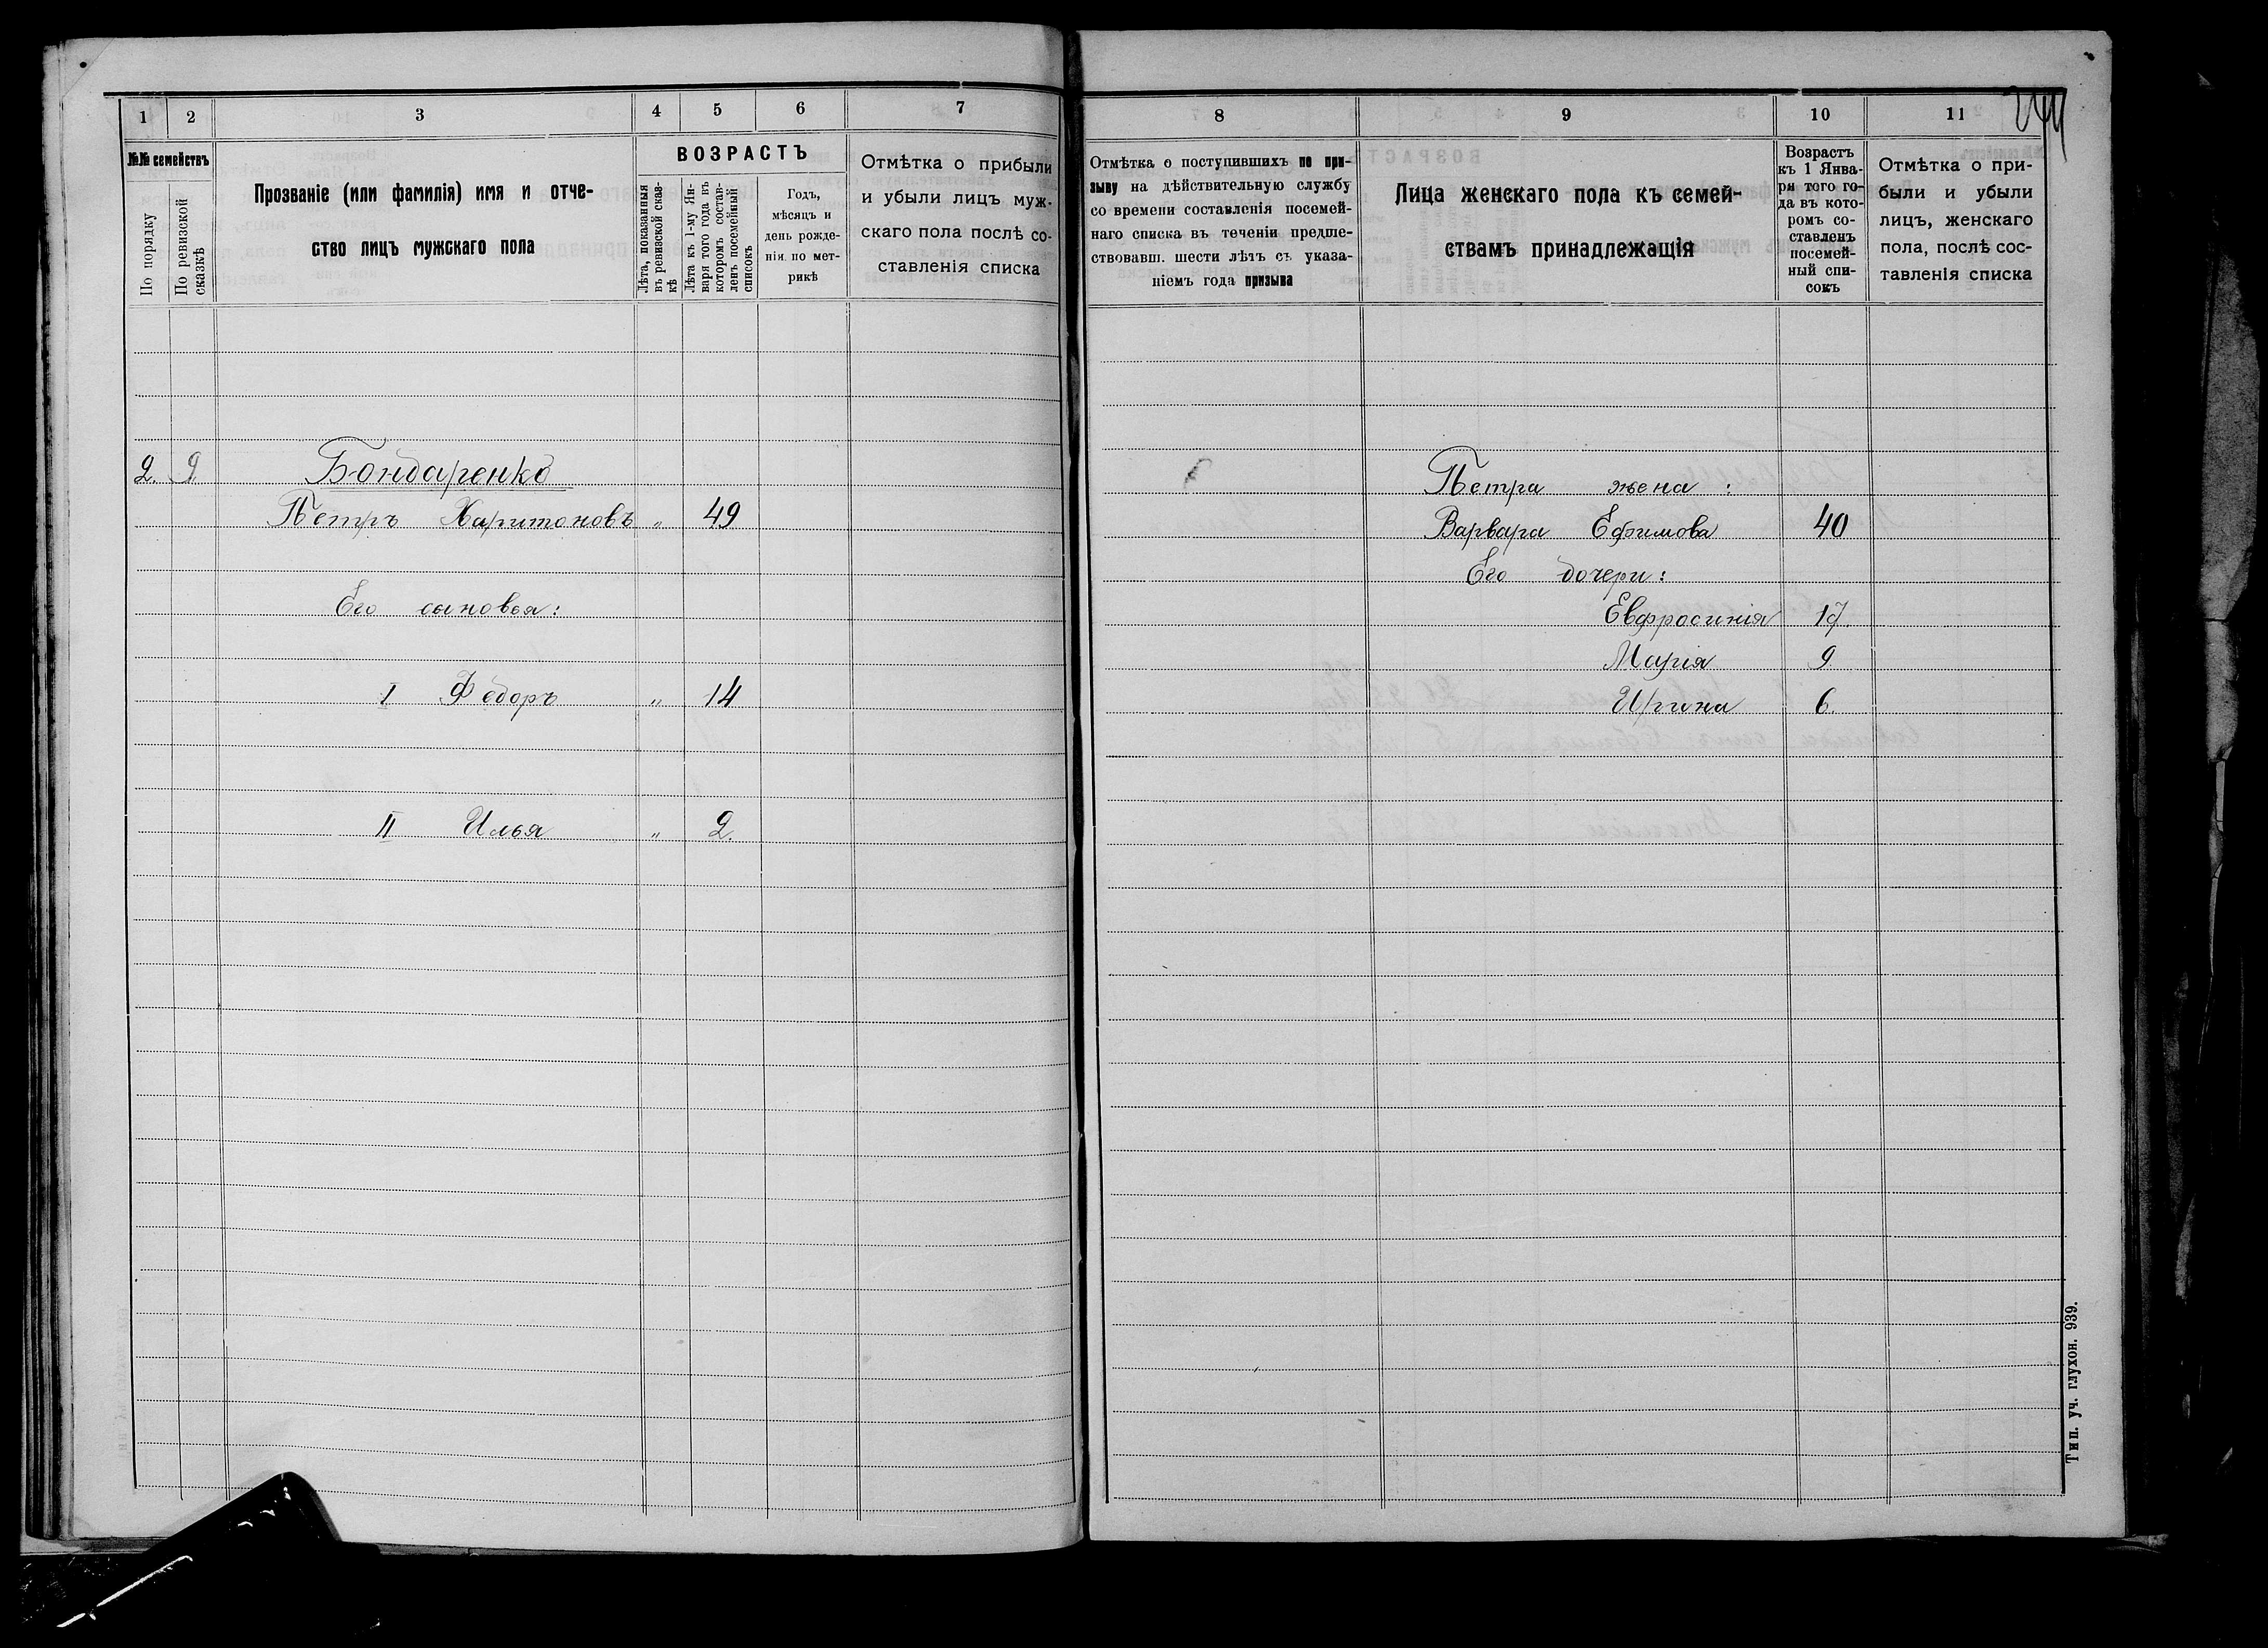 1 2 3 4 5 6 7
№№ семействъ
По порядку
По ревизской сказкѣ
Прозваніе (или фамилія) имя и отче-
ство лицъ мужскаго пола
ВОЗРАСТЪ
Лѣта, показанныя
въ ревизской сказ-
кѣ
Лѣта къ 1-му Ян-
варя того года въ
которомъ состав-
ленъ посемейный
списокъ
Годъ,
мѣсяцъ и
день рожде-
нія по мет-
рикѣ
Отмѣтка о прибыли
и убыли лицъ муж-
скаго пола послѣ со-
ставленія списка
2. 2 Бондаренко
Петръ Харитоновъ „ 49
Его сыновья:
I Федоръ „ 14
II Илья „ 2.
8 9 10 11
Отмѣтка о поступившихъ по при-
зыву на дѣйствительную службу
со времени составленія посемей-
наго списка въ теченіи предше-
ствовавш. шести лѣтъ съ указа-
ніемъ года призыва
Лица женскаго пола къ семей-
ствамъ принадлежащія
Возрастъ
къ 1 Янва-
ря того го-
да въ кото-
ромъ со-
ставленъ
посемей-
ный спи-
сокъ
Отмѣтка о при-
были и убыли
лицъ, женскаго
пола, послѣ сос-
тавленія списка
Петра жена :
Варвара Ефимова 40
Его дочери:
Евфросинія 17.
Марія 9.
Ирина 6.
Тип. уч. глухон. 939.